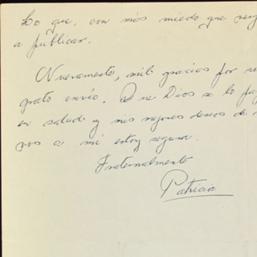 Lo que, con más miedo que ver
a publicar.
Nuevamente, mil gracias por
grato envío. Que Dios se lo pa
en salud y mis mejores deseos de
vos a mí estoy segura.
Fraternalmente
Patricia